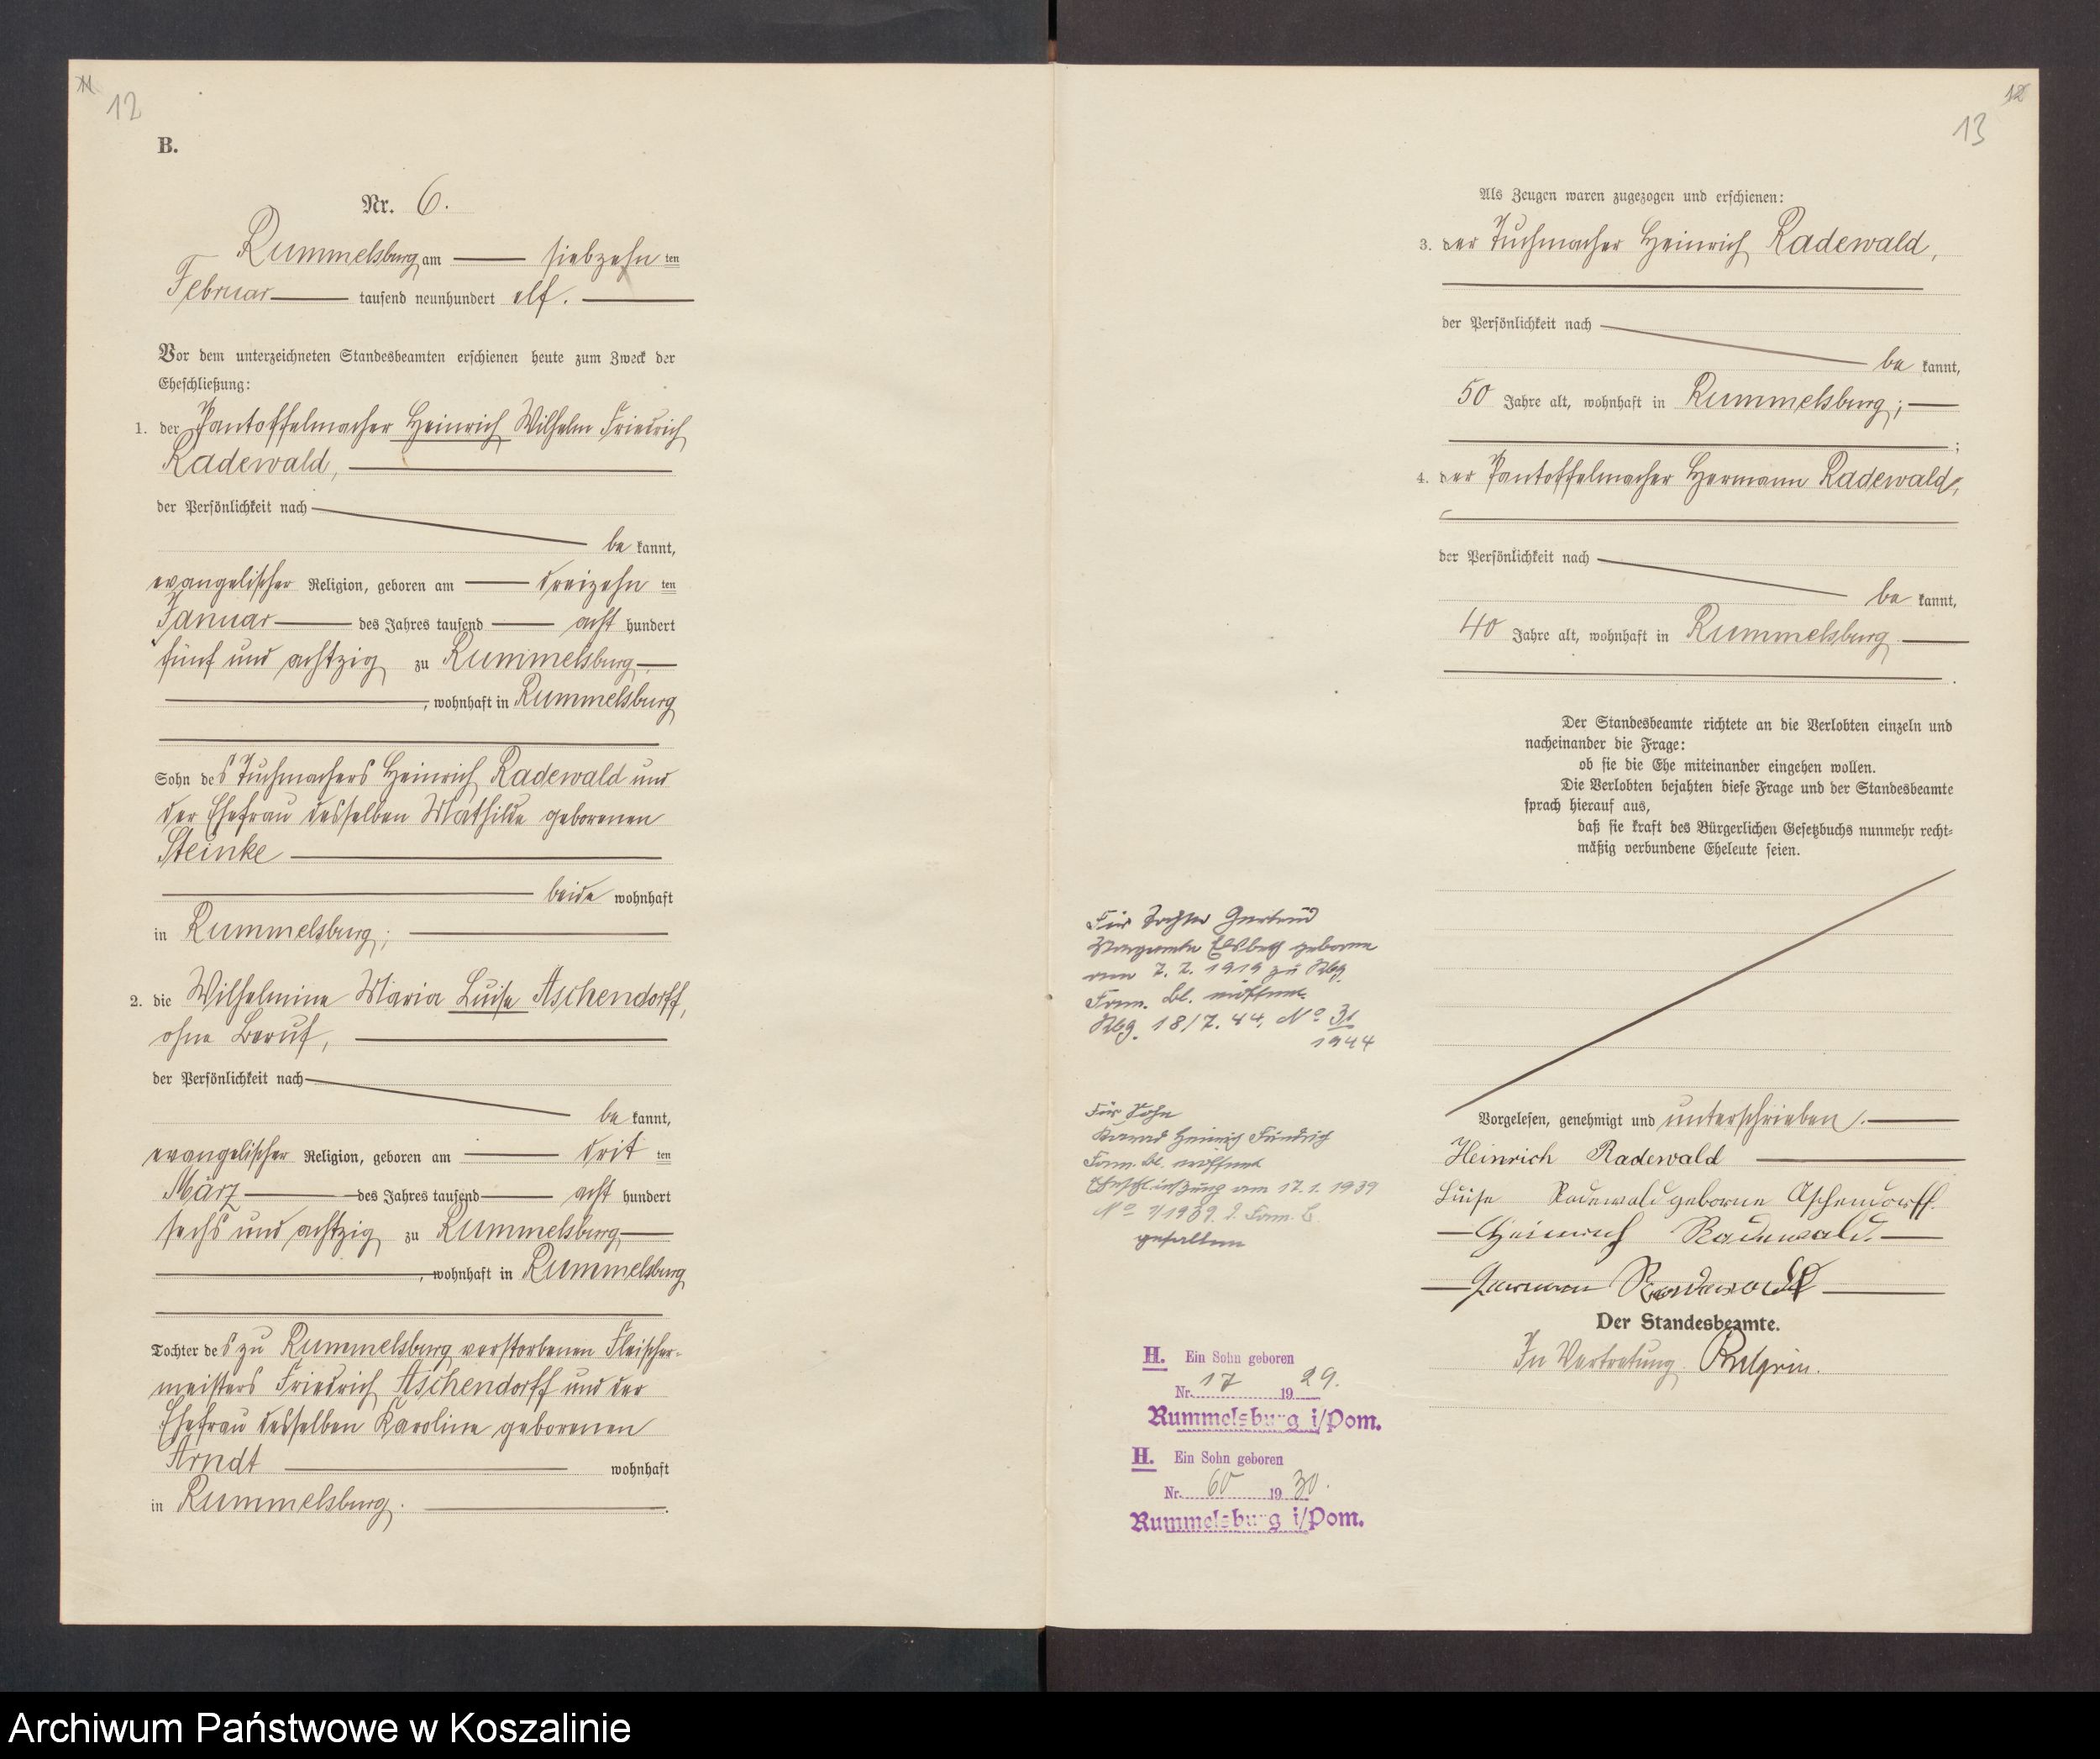 11
12
B.
Nr. 6.
Rummelsburg am siebzehn ten
Februar tausend neunhundert elf.
Vor dem unterzeichneten Standesbeamten erschienen heute zum Zweck der
Eheschließung:
1. der Pantoffelmacher Heinrich Wilhelm Friedrich
Radewald,
der Persönlichkeit nach
be kannt,
evangelischer Religion, geboren am dreizehn ten
Januar des Jahres tausend acht hundert
fünf und achtzig zu Rummelsburg
, wohnhaft in Rummelsburg
Sohn des Tuchmachers Heinrich Radewald und
der Ehefrau desselben Mathilde geborenen
Steinke
beide wohnhaft
in Rummelsburg;
2. die Wilhelmine Maria Luise Aschendorff,
ohne Beruf,
der Persönlichkeit nach
be kannt,
evangelischer Religion, geboren am drit ten
März des Jahres tausend acht hundert
sechs und achtzig zu Rummelsburg
, wohnhaft in Rummelsburg
Tochter des zu Rummelsburg verstorbenen Fleischer-
meisters Friedrich Aschendorff und der
Ehefrau desselben Karoline geborenen
Arndt wohnhaft
in Rummelsburg.
12
13
Als Zeugen waren zugezogen und erschienen:
3. der Tuchmacher Heinrich Radewald,
der Persönlichkeit nach
be kannt,
50 Jahre alt, wohnhaft in Rummelsburg;
4. der Pantoffelmacher Hermann Radewald,
der Persönlichkeit nach
be kannt,
40 Jahre alt, wohnhaft in Rummelsburg
Der Standesbeamte richtete an die Verlobten einzeln und
nacheinander die Frage:
ob sie die Ehe miteinander eingehen wollen.
Die Verlobten bejahten diese Frage und der Standesbeamte
sprach hierauf aus,
daß sie kraft des Bürgerlichen Gesetzbuchs nunmehr recht-
mäßig verbundene Eheleute seien.
Vorgelesen, genehmigt und unterschrieben.
Heinrich Radewald
Luise Radewald geborene Aschendorff.
Heinrich Radewald.
Hermann Radewald
Der Standesbeamte.
In Vertretung.
Für Tochter Gertrud
Margarete Elsbeth geboren
am 7. 2. 1919 zu Rbg.
Fam. Bl. eröffnet.
Rbg. 18/7. 44. No 31
1944
Für Sohn
Heinrich Friedrich
Fam. bl. eröffnet
Eheschließung am 17. 1. 1939
No 1939. Fam. B.
H. Ein Sohn geboren
Nr. 17 19 29.
Rummelsburg i/Pom.
H. Ein Sohn geboren
Nr. 60 19 30.
Rummelsburg i/Pom.
Archiwum Państwowe w Koszalinie